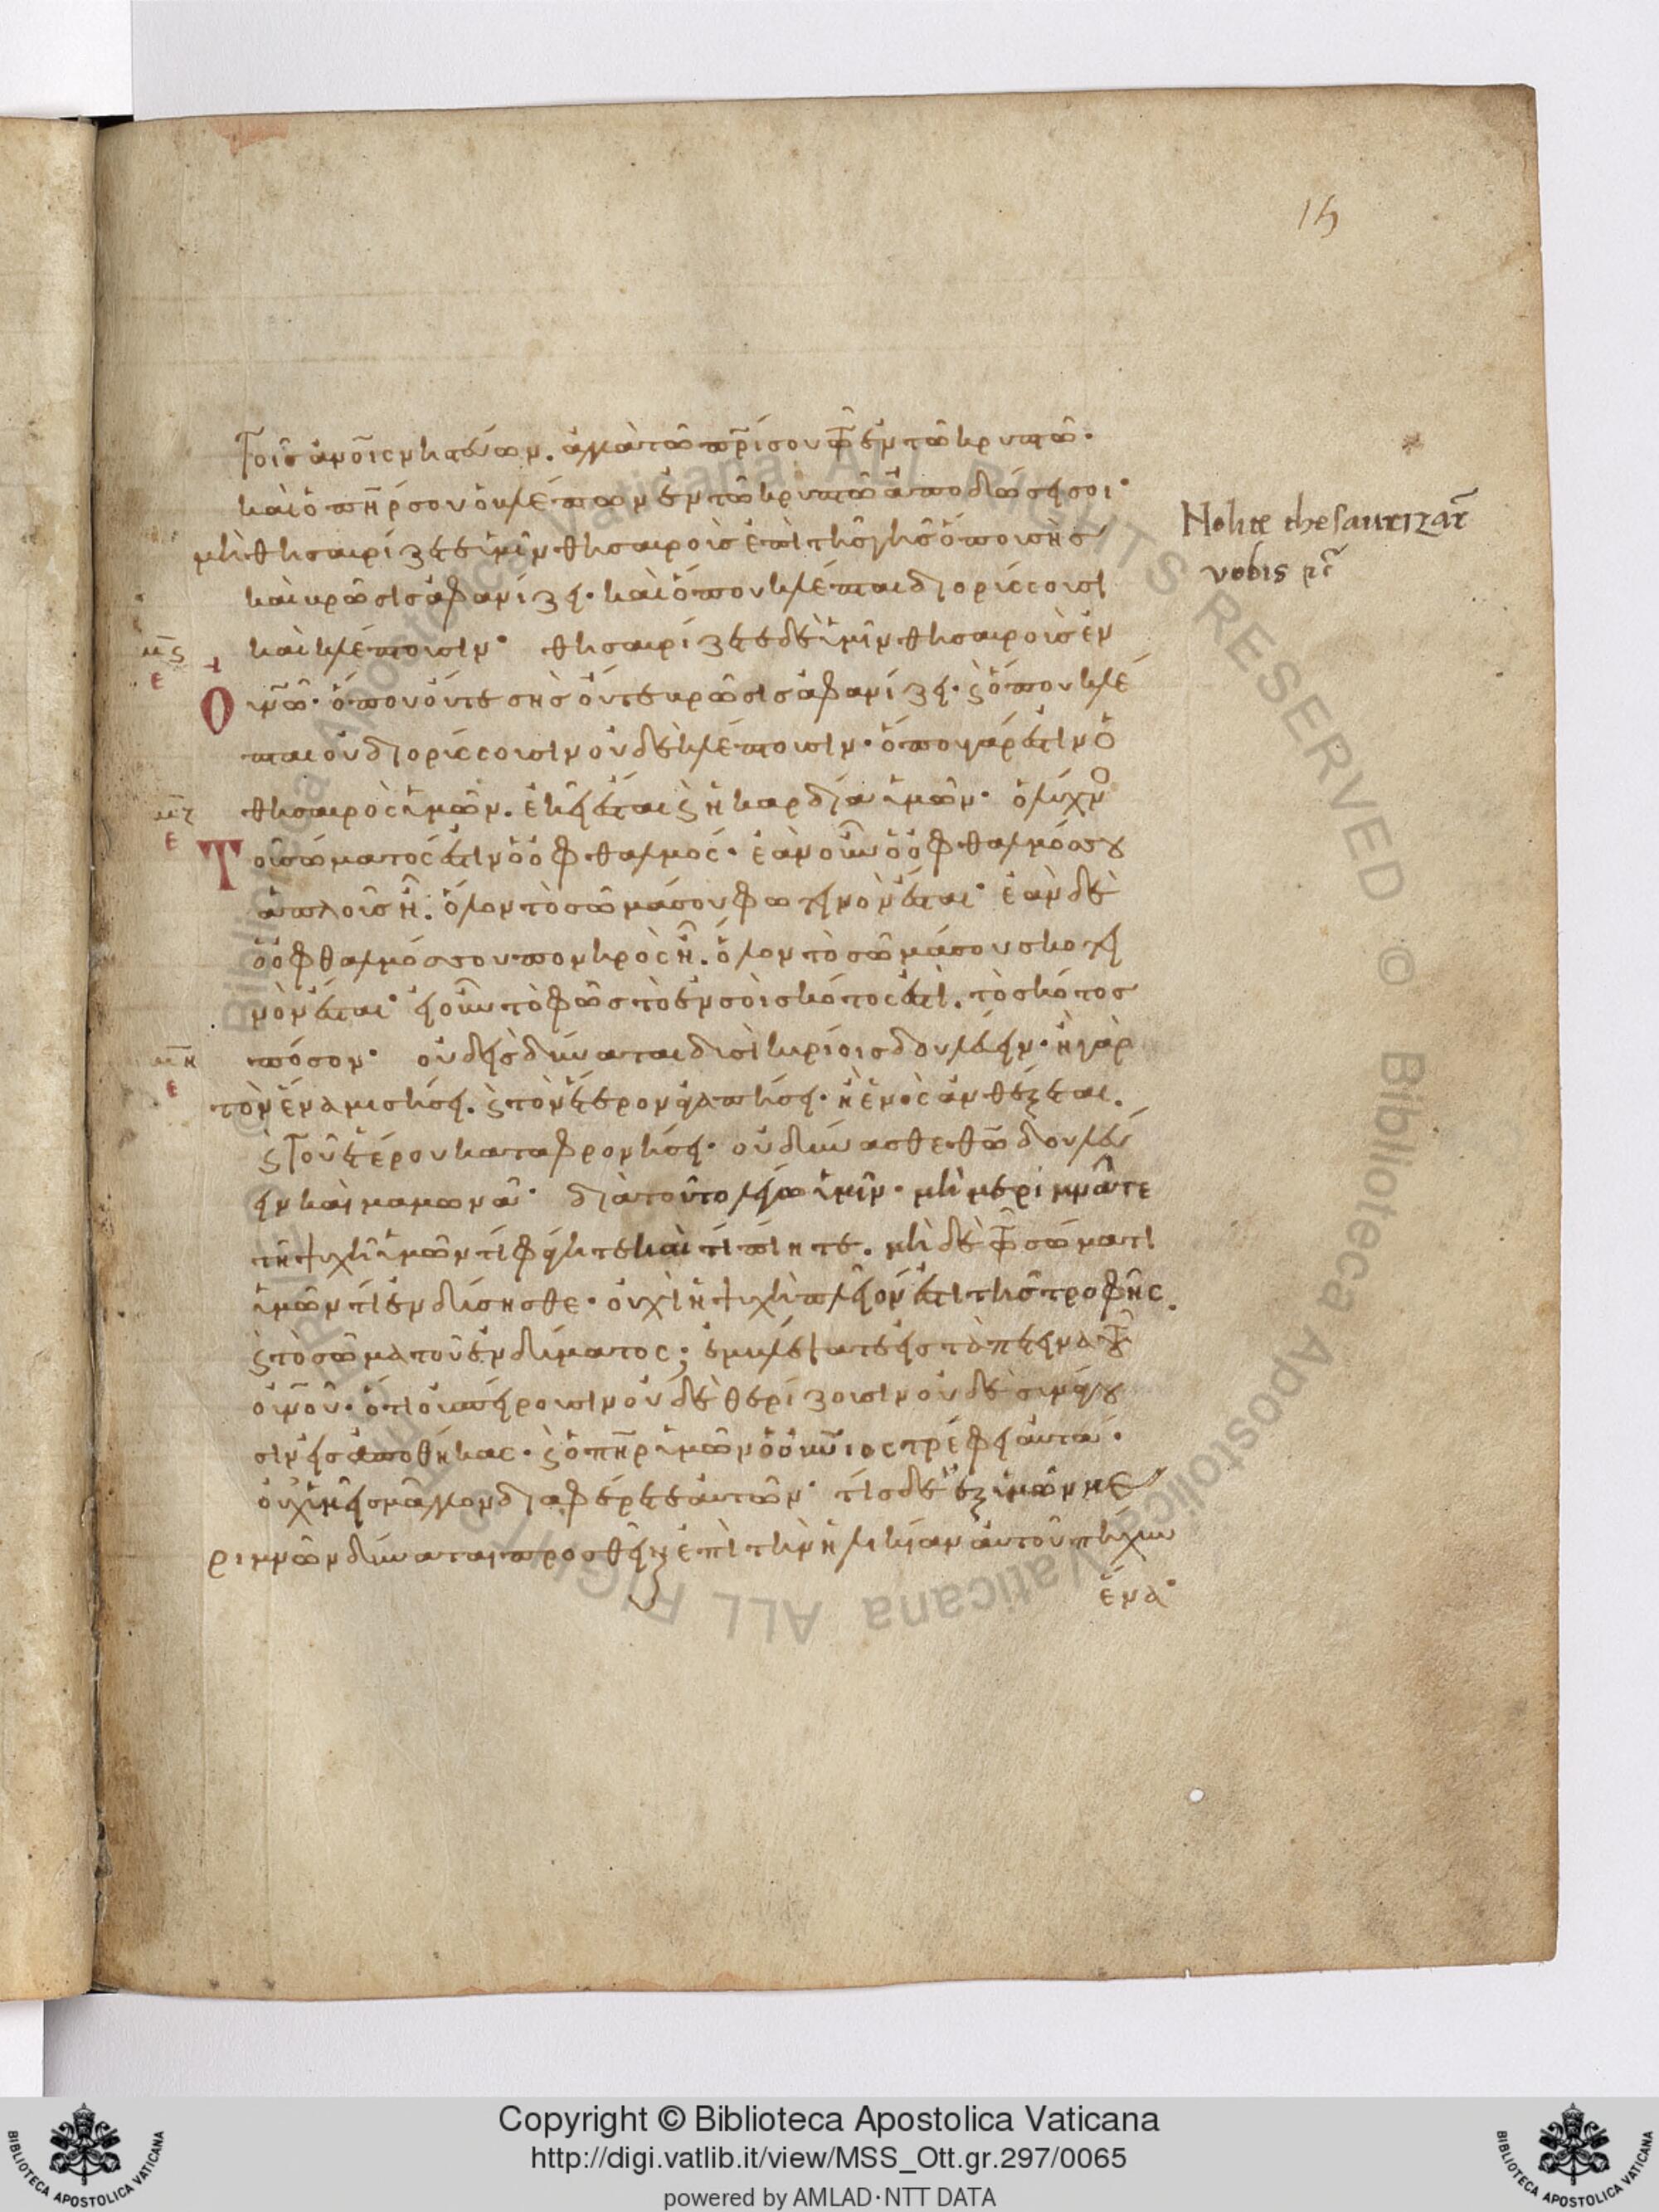 15
τοῖς ἀνοῖς νηστεύων. ἀλλὰ τῶ πρί σου τῶ ἐν τῶ κρυπτῶ·
καὶ ὁ πηρ σου ὁ βλέπων ἐν τῶ κρυπτῶ ἀποδώσει σοι·
μὴ θησαυρίζετε ὑμῖν θησαυροὺς ἐπὶ τῆς γῆς ὅπου σὴς
καὶ βρῶσις ἀφανίζει· καὶ ὅπου κλέπται διορύσσουσι
καὶ κλέπτουσιν· θησαυρίζετε δὲ ὑμῖν θησαυροὺς ἐν
οὐνῶ· ὅπου οὔτε σὴς οὔτε βρῶσις ἀφανίζει· ϗ ὅπου κλέ
πται οὐ διορύσσουσιν οὐδὲ κλέπτουσιν· ὅπου γάρ ἐστιν ὁ
θησαυρὸς ὑμῶν. ἐκεῖ ἔσται ϗ ἡ καρδία ὑμῶν· ὁ λύχνο
τοῦ σώματός ἐστιν ὁ ὀφθαλμός· ἐὰν οὖν ὁ ὀφθαλμός σου
ἁπλοῦς ἦ. ὅλον τὸ σῶμά σου φωτεινὸν ἔσται· ἐὰν δὲ
ὁ ὀφθαλμός σου πονηρὸς ἦ. ὅλον τὸ σῶμά σου σκοτει
νὸν ἔσται· εἰ οὖν τὸ φῶς τὸ ἐν σοὶ σκότος ἐστὶ. τὸ σκότος
πόσον· οὐδεὶς δύναται δυσὶ κυρίοις δουλεύειν· ἢ γὰρ
τὸν ἕνα μισήσει. ϗ τὸν ἕτερον ἀγαπήσει· ἢ ἑνὸς ἀνθέξεται.
ϗ τοῦ ἑτέρου καταφρονήσει· οὐ δύνασθε θῶ δουλεύ
ειν καὶ μαμωνᾶ· διὰ τοῦτο λέγω ὑμῖν· μὴ μεριμνᾶτε
τῆ ψυχῆ ὑμῶν τί φάγητε καὶ τί πίητε. μὴ δὲ τῶ σώματι
ὑμῶν τί ἐνδύσησθε· οὐχὶ ἡ ψυχὴ πλεῖόν ἐστι τῆς τροφῆς.
ϗ τὸ σῶμα τοῦ ἐνδύματος; ἐμβλέψατε εἰς τὰ πετεινὰ τοῦ
οὐνοῦ· ὅτι οὐ σπείρουσιν οὐδὲ θερίζουσιν οὐδὲ συνάγου
σιν εἰς ἀποθήκας· ϗ ὁ πηρ ὑμῶν ὁ οὐνιος τρέφει αὐτά·
οὐχ ὑμεῖς μᾶλλον διαφέρετε αὐτῶν· τίς δὲ ἐξ ὑμῶν με
ριμνῶν δύναται προσθεῖναι ἐπὶ τὴν ἡλικίαν αὐτοῦ πῆχυν
ἕνα·
μς
ε
μζ
ε
μη
ε
Nolite thesaurizar
vobis
Copyright © Biblioteca Apostolica Vaticana
http://digi.vatlib.it/view/MSS_Ott.gr.297/0065
powered by AMLAD·NTT DATA
BIBLIOTECA APOSTOLICA VATICANA
BIBLIOTECA APOSTOLICA VATICANA